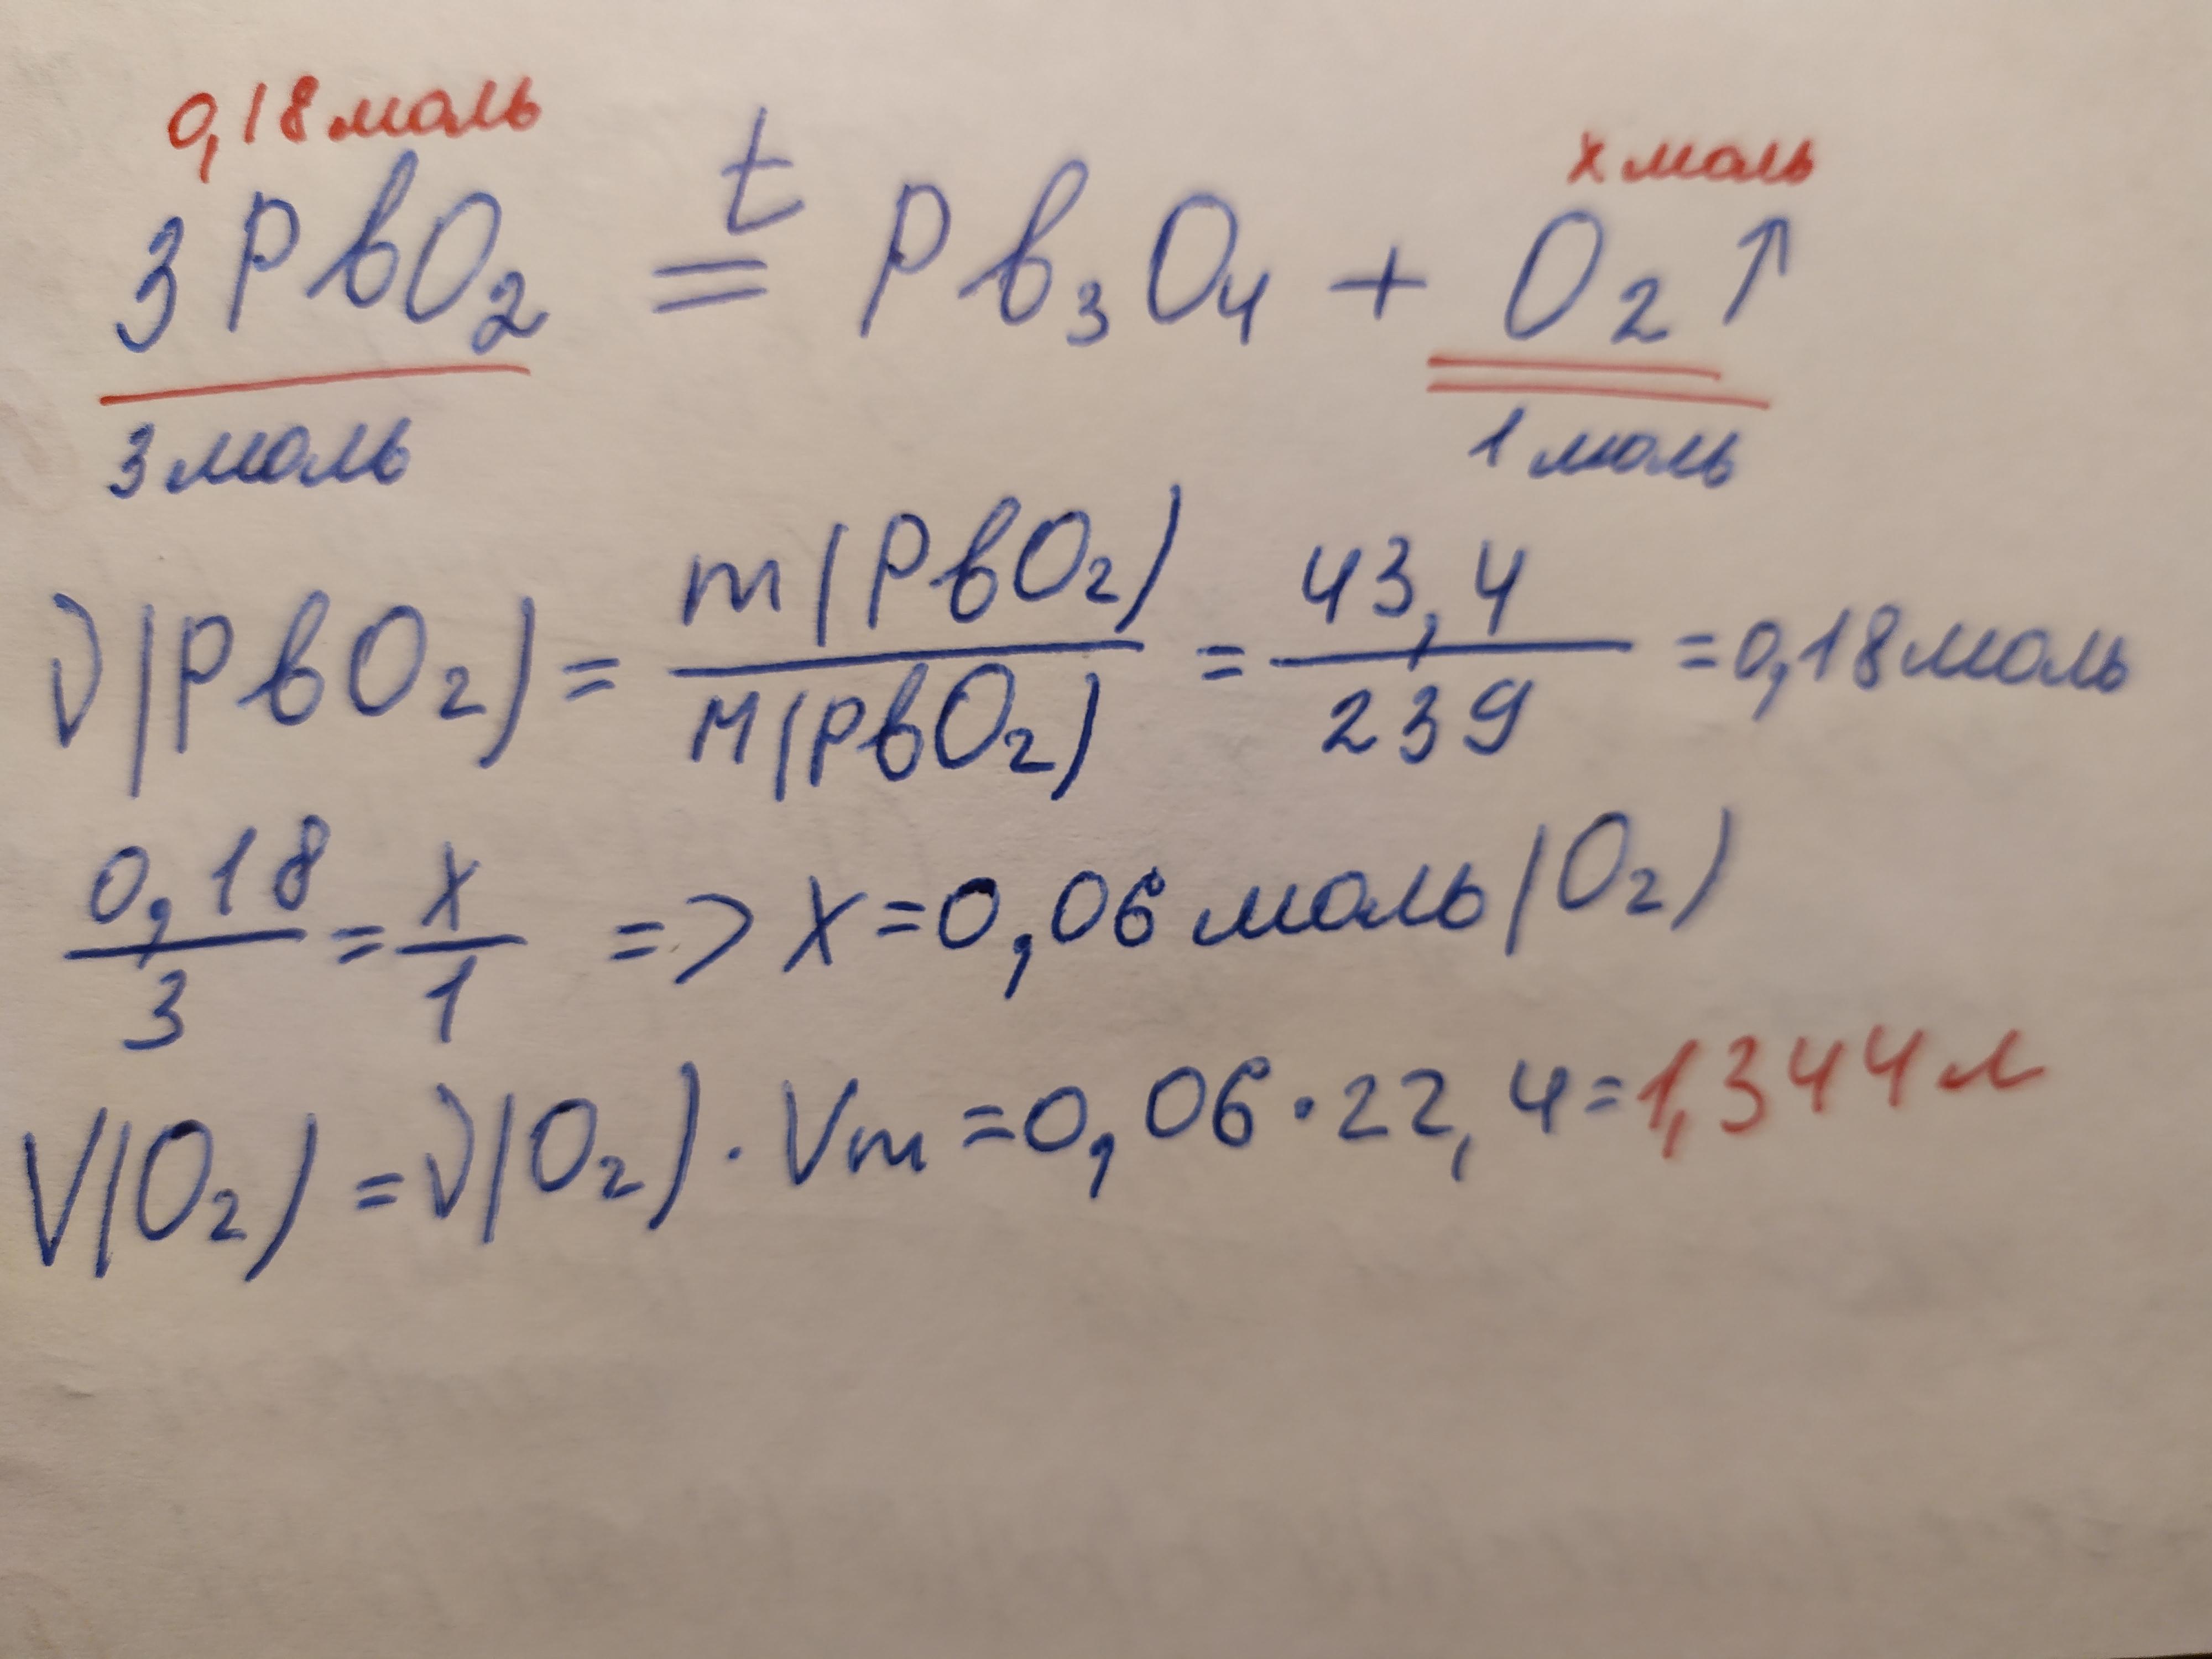 0,18 моль x моль
3PbO₂ =ᵗ Pb₃O₄ + O₂↑
3 моль 1 моль
ν(PbO₂) = m(PbO₂)/M(PbO₂) = 43,4/239 = 0,18 моль
0,18/3 = x/1 => x = 0,06 моль (O₂)
V(O₂) = ν(O₂) · Vm = 0,06 · 22,4 = 1,344 л